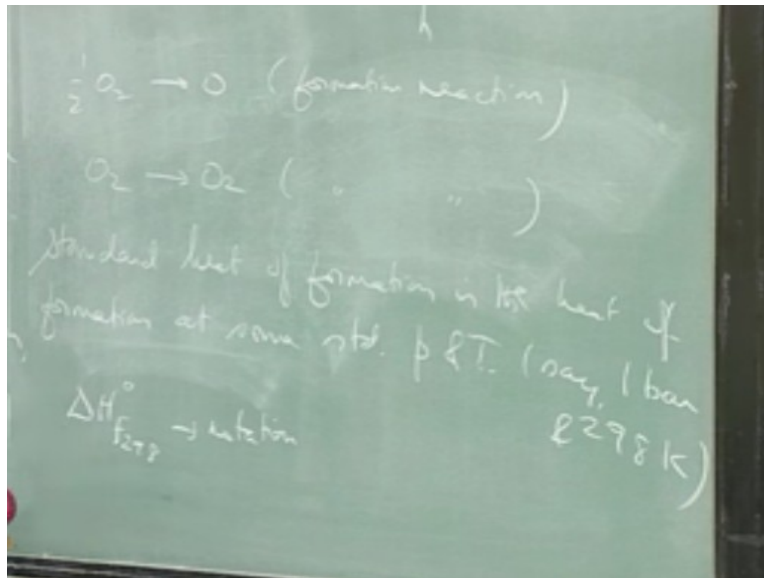 ½O₂ → O (formation reaction)
O₂ → O₂ ( " " )
Standard heat of formation is the heat of
formation at some std. p & T. (say, 1 bar
& 298K)
ΔH°f₂₉₈ → notation